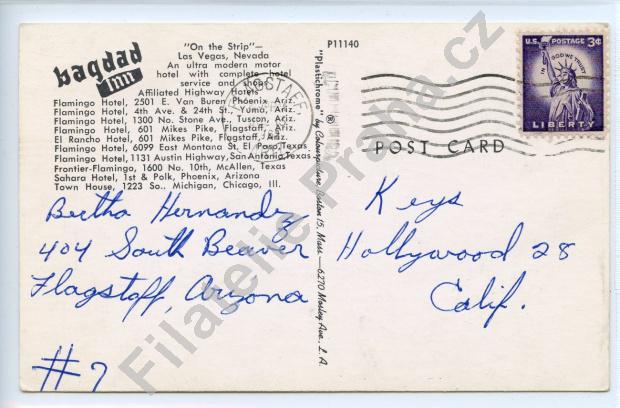 bagdad
inn
"On the Strip"—
Las Vegas, Nevada
An ultra modern motor
hotel with complete hotel
service and shops.
Affiliated Highway Hotels
Flamingo Hotel, 2501 E. Van Buren Phoenix Ariz.
Flamingo Hotel, 4th Ave. & 24th St., Yuma, Ariz.
Flamingo Hotel, 1300 No. Stone Ave., Tuscon, Ariz.
Flamingo Hotel, 601 Mikes Pike, Flagstaff, Ariz.
El Rancho Hotel, 601 Mikes Pike, Flagstaff, Ariz.
Flamingo Hotel, 6099 East Montana St. El Paso, Texas
Flamingo Hotel, 1131 Austin Highway, San Antonio, Texas
Frontier-Flamingo, 1600 No. 10th, McAllen, Texas
Sahara Hotel, 1st & Polk, Phoenix, Arizona
Town House, 1223 So.. Michigan, Chicago, Ill.
Bertha Hernandez
404 South Beaver
Flagstaff, Arizona
#7
P11140
"Plastichrome" ® by Colourpicture, Boston 15, Mass.—6270 Mosley Ave., L. A.
FLAGSTAFF
U.S. POSTAGE 3¢
IN GOD WE TRUST
LIBERTY
POST CARD
Keys
Hollywood 28
Calif.
Filatelie Praha.cz